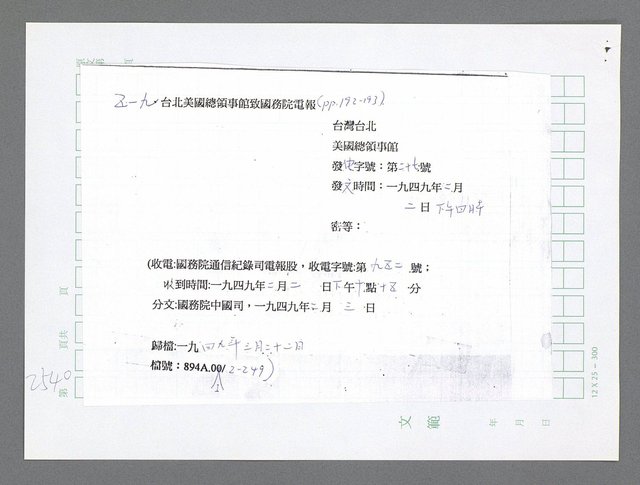 五一九 台北美國總領事館致國務院電報(pp.192-193)
台灣台北
美國總領事館
發電字號：第二十七號
發文時間：一九四九年二月
二日下午四時
密等：
(收電:國務院通信紀錄司電報股，收電字號:第九五二號；
收到時間:一九四九年二月二 日下午十點十五分
分文:國務院中國司，一九四九年二月 三 日
歸檔:一九四九年三月二十二日
檔號：894A.00/2-249)
2540
第 頁共 頁
12 X 25 — 300
文範
年 月 日